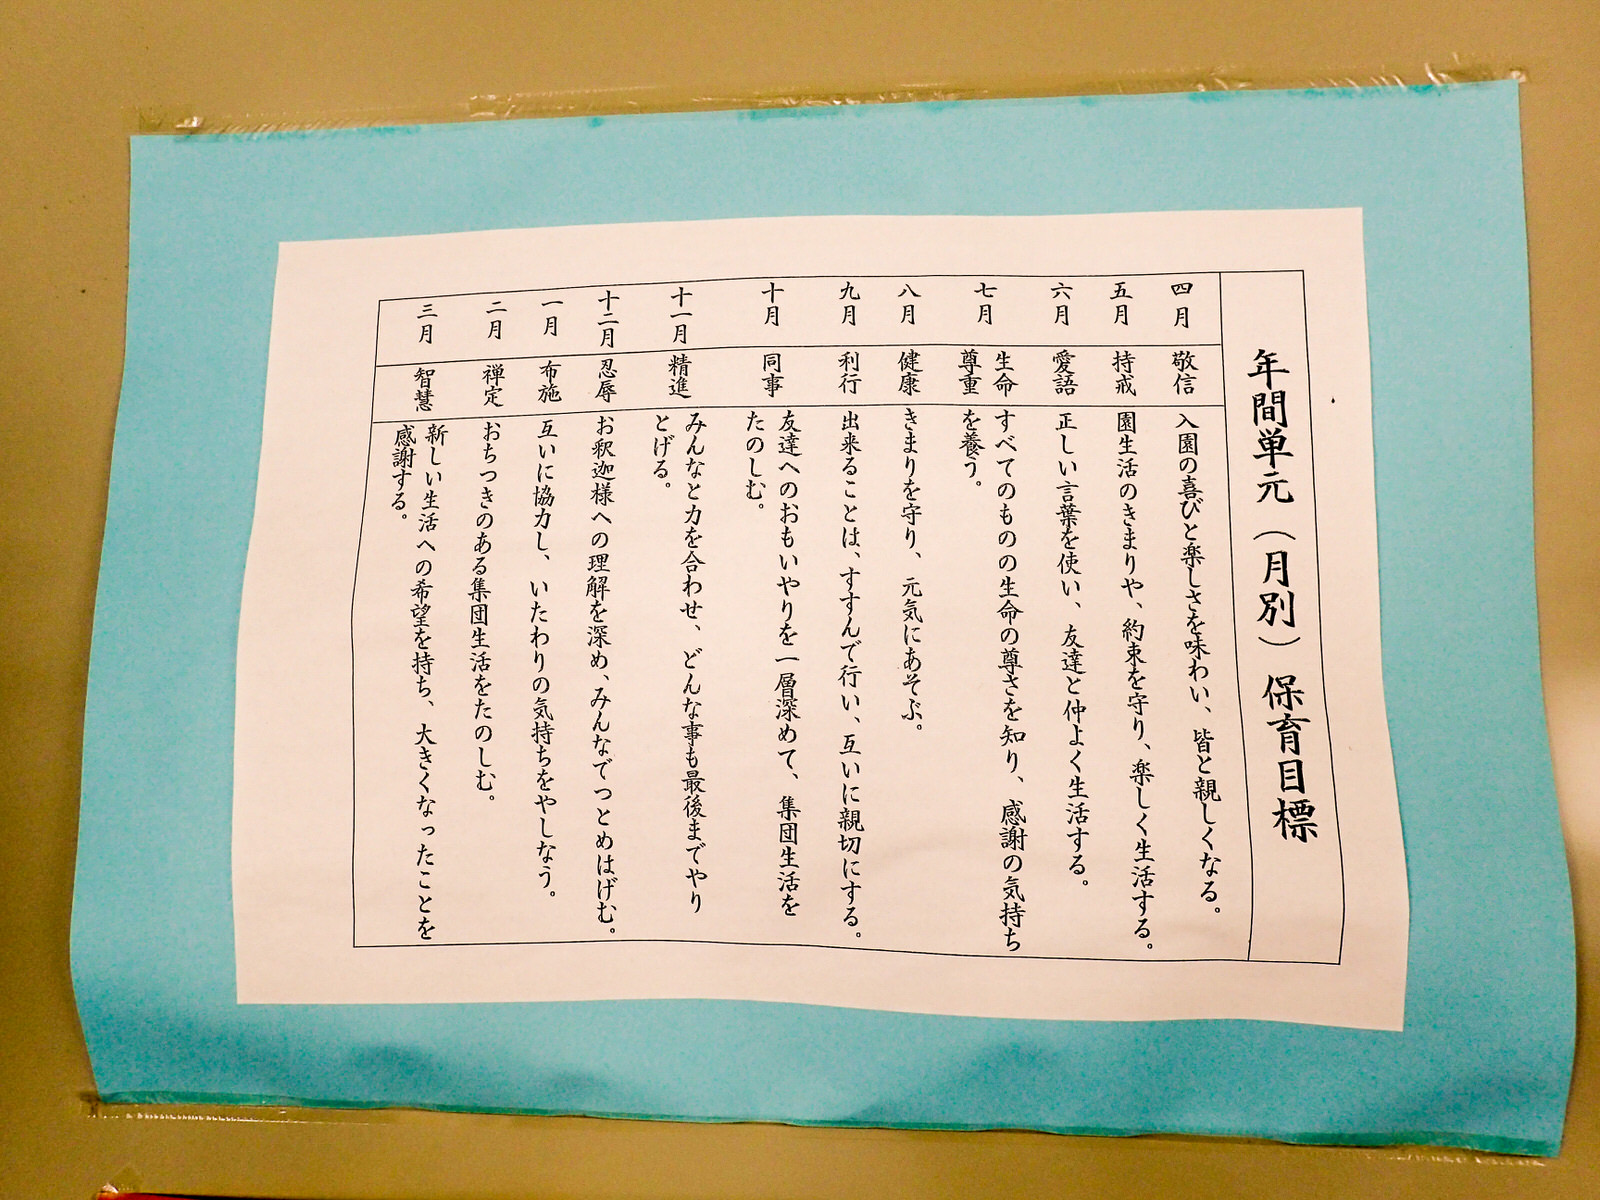 年間単元（月別）保育目標
四月
敬信
入園の喜びと楽しさを味わい、皆と親しくなる。
五月
持戒
園生活のきまりや、約束を守り、楽しく生活する。
六月
愛語
正しい言葉を使い、友達と仲よく生活する。
七月
生命
尊重
すべてのものの生命の尊さを知り、感謝の気持ち
を養う。
八月
健康
きまりを守り、元気にあそぶ。
九月
利行
出来ることは、すすんで行い、互いに親切にする。
十月
同事
友達へのおもいやりを一層深めて、集団生活を
たのしむ。
十一月
精進
みんなと力を合わせ、どんな事も最後までやり
とげる。
十二月
忍辱
お釈迦様への理解を深め、みんなでつとめはげむ。
一月
布施
互いに協力し、いたわりの気持ちをやしなう。
二月
禅定
おちつきのある集団生活をたのしむ。
三月
智慧
新しい生活への希望を持ち、大きくなったことを
感謝する。